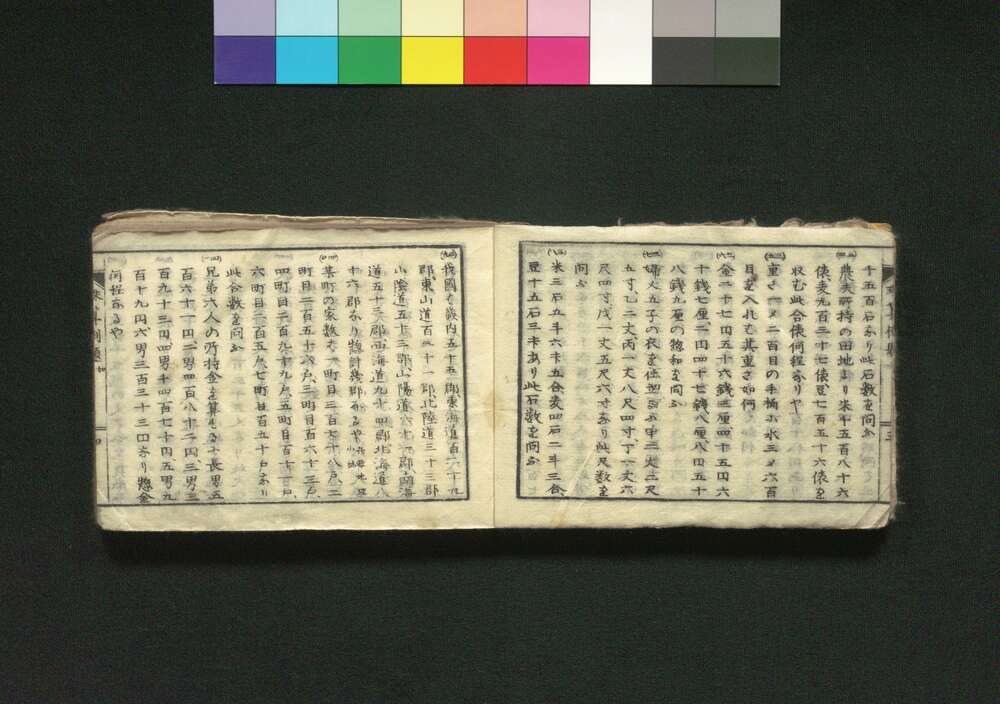 千五百石なり此石数を問ふ
農夫所持の田地より米千五百八十六
俵麦九百三十七俵豆七百五十六俵を
収む此合俵何程なりや
重さ一〆二百目の手桶に水三〆六百
目を入れて其重さ如何
金二十七円五十六銭三厘四十五円六
十銭七厘二円四十七銭八厘八円五十
八銭九厘の惣和を問ふ
婦人五子の衣を仕立るに甲三丈三尺
五寸乙二丈丙一丈八尺四寸丁一丈六
尺四寸戊一丈五尺六寸なり此尺数を
問ふ
米三石五斗六升五合麦四石二斗三合
豆十五石三升あり此石数を問ふ
我國は畿内五十三郡東海道百六十九
郡東山道百三十一郡北陸道三十三郡
山陰道五十三郡山陽道六十七郡南海
道五十三郡西海道九十四郡北海道八
十六郡なり惣計幾郡なるや
某町の家数は一町目三百七十八戸二
町目二百五十六戸三町目百六十三戸
四町目二百九十九戸五町目百十一戸
六町目二百五戸七町目百五十戸なり
此合数を問ふ
兄弟六人の所持金を算するに長男五
百六十一円二男四百八十二円三男三
百九十三円四男千四百七十円五男九
百十九円六男三百三十三円なり惣金
何程なるや